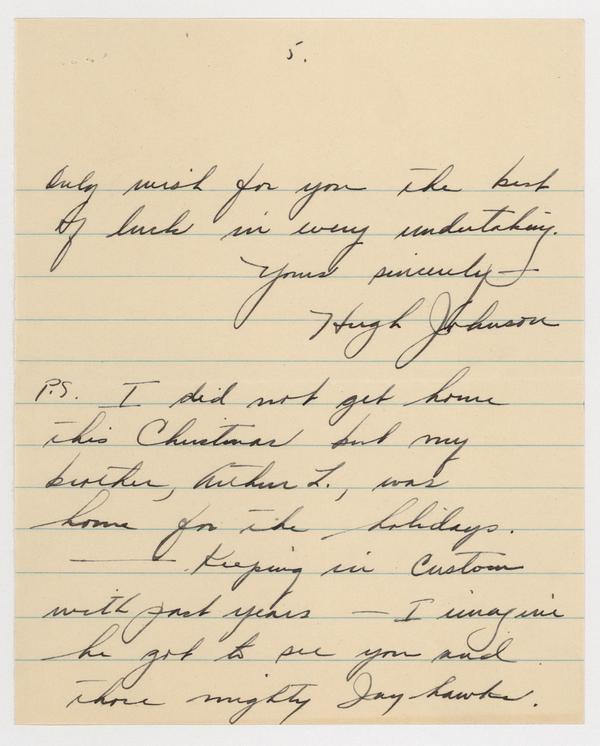 5.
Only wish for you the best
of luck in every undertaking.
Yours sincerely—
Hugh Johnson
P.S. I did not get home
this Christmas but my
brother, Arthur L., was
home for the holidays.
— Keeping in custom
with past years — I imagine
he got to see you and
those mighty Jayhawks.